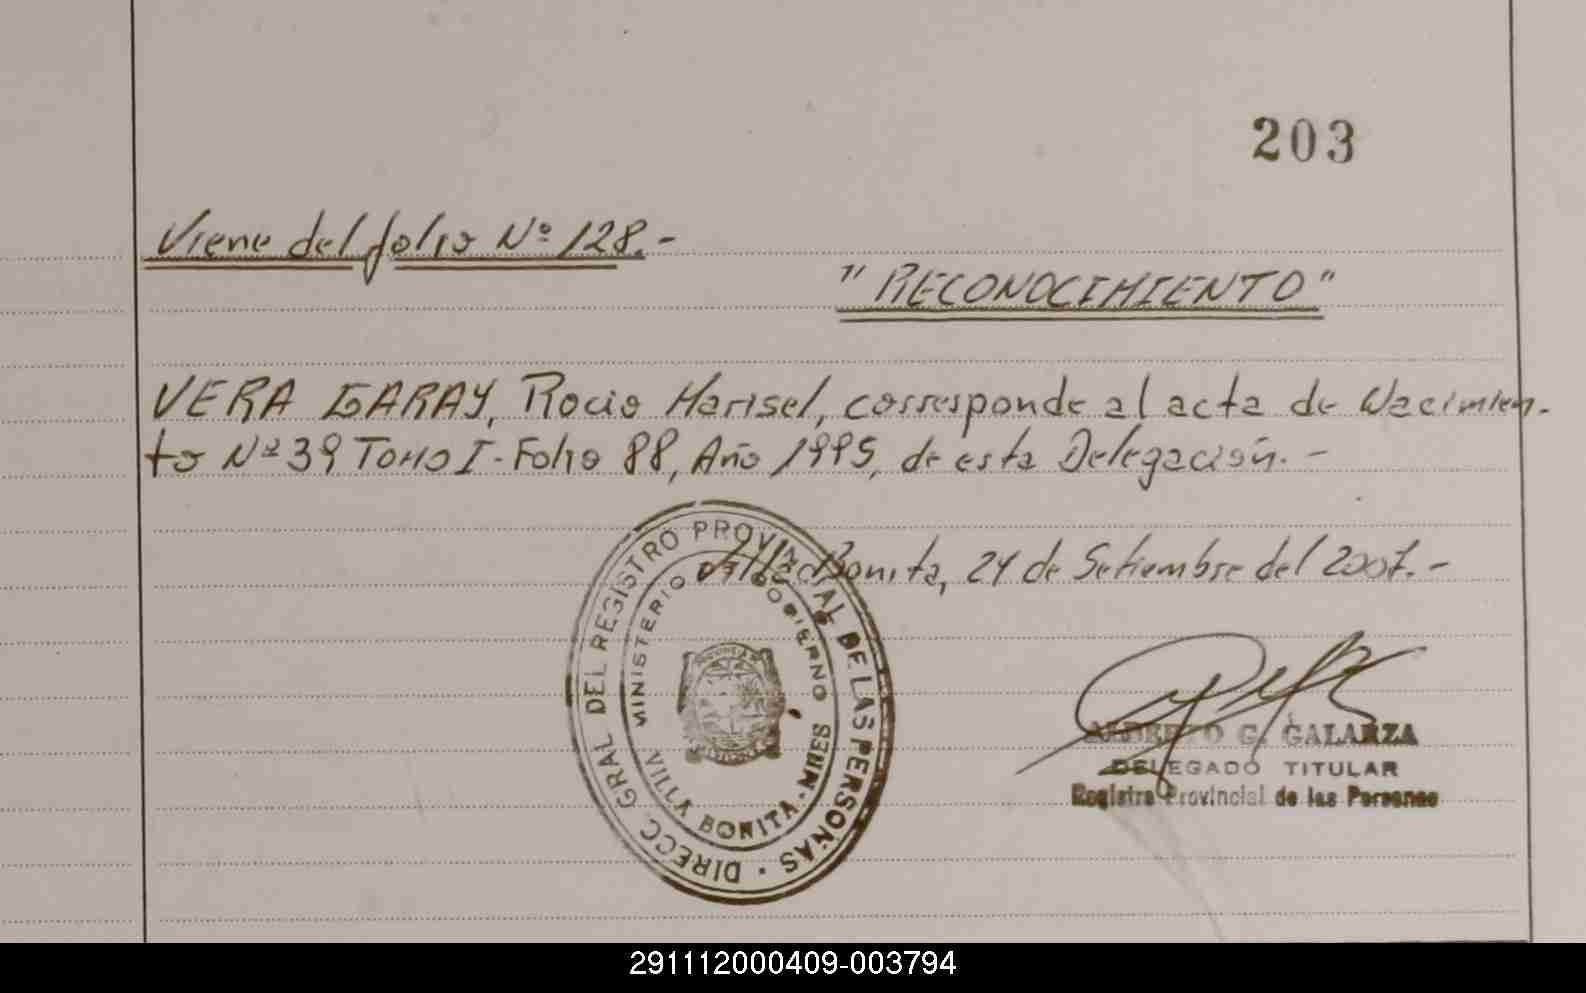 203
Viene del folio Nº 128.-
"RECONOCIMIENTO"
VERA GARAY, Rocio Marisel, corresponde al acta de Nacimien-
to Nº 39 Tomo I - Folio 88, Año 1995, de esta Delegación. -
Villa Bonita, 24 de Setiembre del 2007. -
DIRECC. GRAL DEL REGISTRO PROVINCIAL DE LAS PERSONAS
MINISTERIO DE GOBIERNO
VILLA BONITA - MNES
ALBERTO G. GALARZA
DELEGADO TITULAR
Registro Provincial de las Personas
291112000409-003794